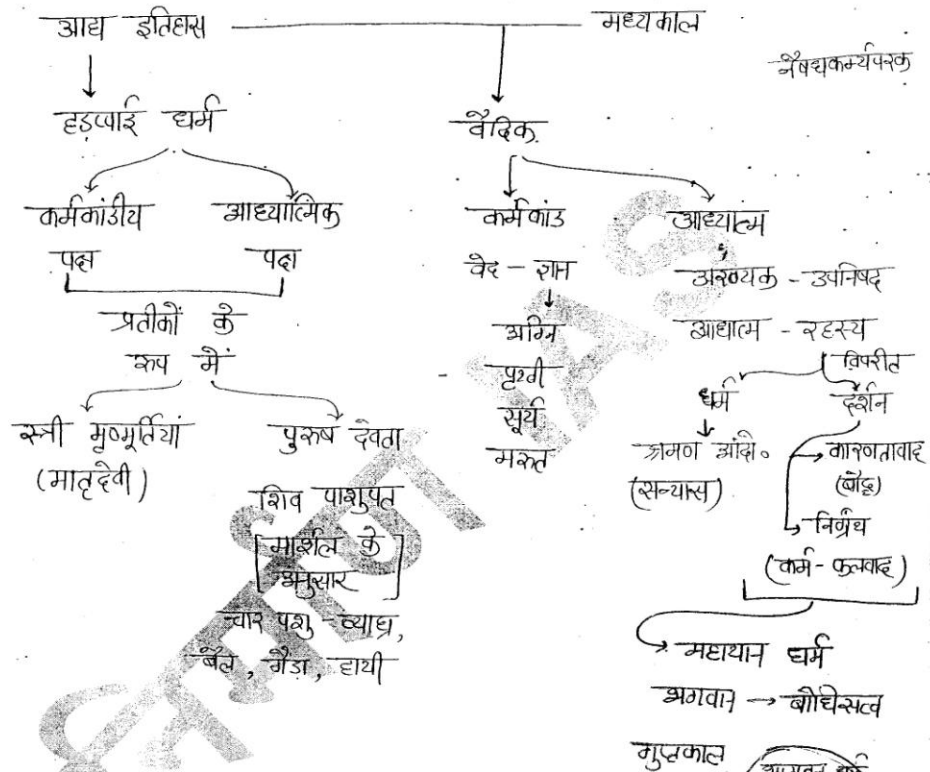 आद्य इतिहास
मध्यकाल
हड़प्पाई धर्म
कर्मकांडीय पक्ष
आध्यात्मिक पक्ष
प्रतीकों के
रुप में
स्त्री मृण्मूर्तियां
(मातृदेवी)
पुरुष देवता
शिव पाशुपत
[मार्शल के
अनुसार]
चार पशु - व्याघ्र,
बैल, गैंडा, हाथी
वैदिक
कर्मकांड
वेद - ज्ञान
अग्नि
पृथ्वी
सूर्य
मरुत
आध्यात्म
अरण्यक - उपनिषद
आध्यात्म - रहस्य
विपरीत
धर्म
दर्शन
श्रमण आंदो॰
(सन्यास)
कारणतावाद
(बौद्ध)
निर्ग्रंथ
(कर्म - फलवाद)
महायान धर्म
भगवान → बोधिसत्व
गुप्तकाल